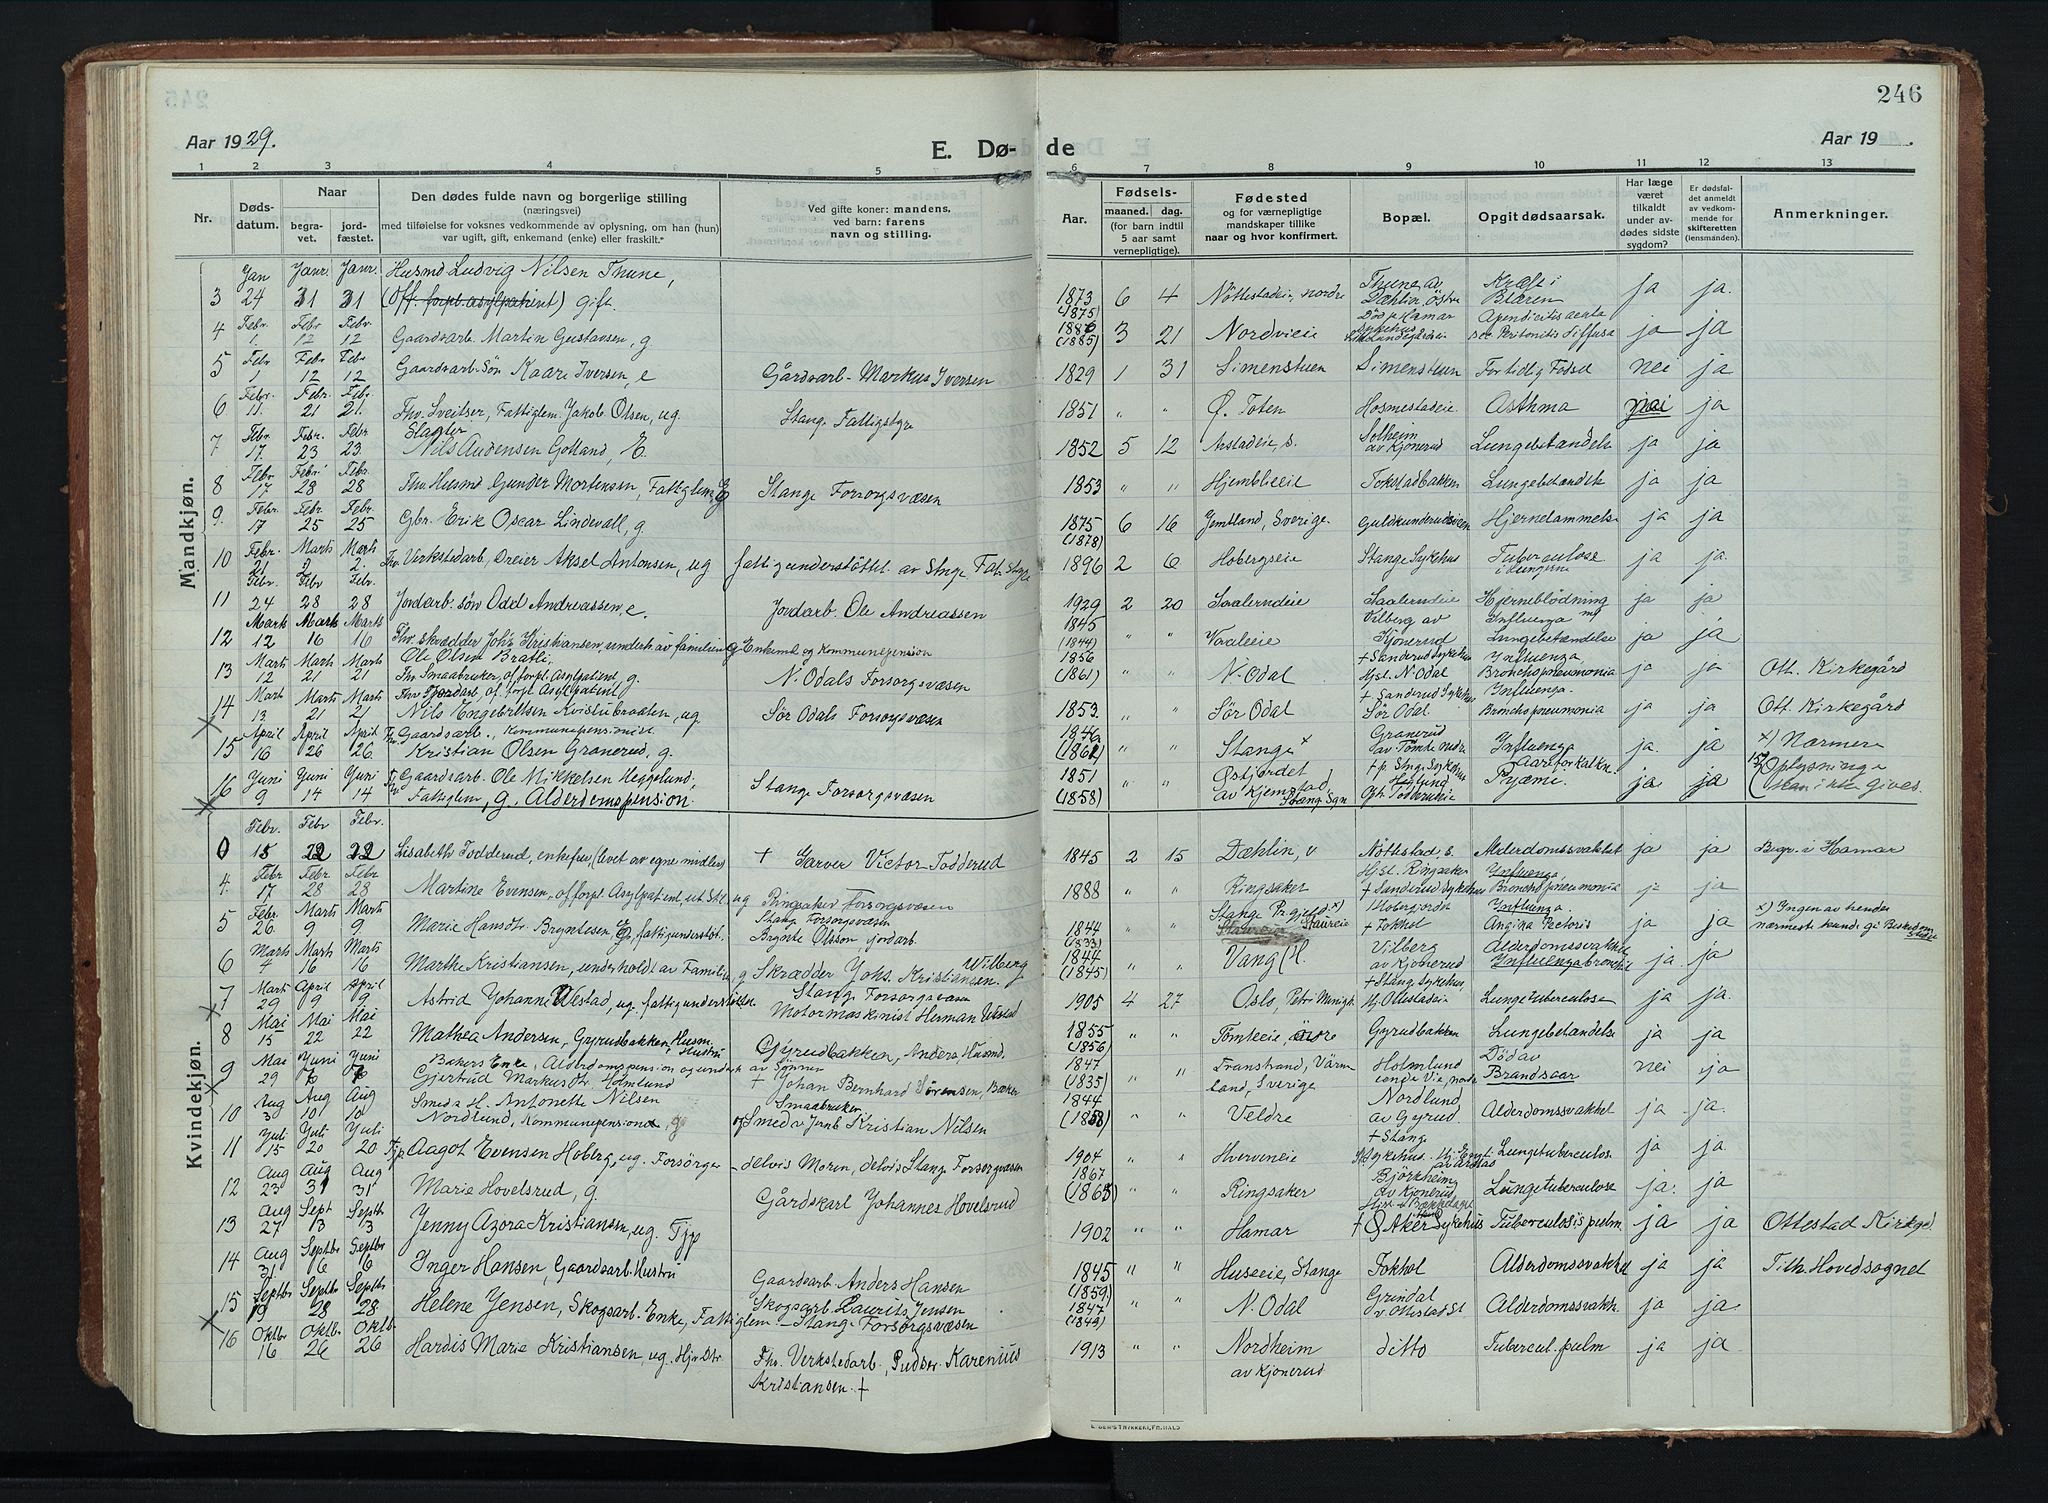 246
Aar 1929.
E. Dø-
de
Aar 19 .
1 2 3 4 5 6 7 8 9 10 11 12 13
Nr.
Døds-
datum.
Naar
begra-
vet.
jord-
fæstet.
Den dødes fulde navn og borgerlige stilling
(næringsvei)
med tilføielse for voksnes vedkommende av oplysning, om han (hun)
var ugift, gift, enkemand (enke) eller fraskilt.*
Ved gifte koner: mandens,
ved barn: farens
navn og stilling.
Aar.
Fødsels-
maaned. dag.
(for barn indtil
5 aar samt
vernepligtige).
Fødested
og for værnepligtige
mandskaper tillike
naar og hvor konfirmert.
Bopæl.
Opgit dødsaarsak.
Har læge
været
tilkaldt
under av-
dødes sidste
sygdom?
Er dødsfal-
det anmeldt
av vedkom-
mende for
skifteretten
(lensmanden).
Anmerkninger.
Mandkjøn.
3 Jan 24 Janr. 31 Janr. 31 Husmd Ludvig Nilsen Thune,
(Off. forpl. asylpatient) gift. 1873 (1875) 6 4 Nöttestadeie, nordre Thune av Dæhlin, östre Kræft i Blæren ja ja.
4 Febr. 1. Febr 12 Febr 12 Gaardsarb. Martin Gustavsen, g. 1886 (1885) 3 21 Nordvieie Död p Hamar Sykehus Apendicitis acuta Peritonitis diffusa ja ja
5 Febr 1 Febr 12 Febr 12 Gaardsarb. Sön Kaare Iversen, e Gårdsarb. Markus Iversen 1829 1 31 Simenstuen Simenstuen For tidlig Födsel nei ja
6 Febr. 11. Febr. 21 Febr 21. Fhv. Sveitser, Fattiglem Jakob Olsen, ug. Stange Fattigstyre 1851 " " Ø. Toten Hosmestadeie. Asthma nei ja
7 Febr 17. Febr. 23 Febr 23. Slagter
Nils Andensen Gotland, E. 1852 5 12 Arstadeie, s. Solheim av Kjonerud Lungebetændelse ja ja
8 Febr 17 Febr 28 Febr. 28 Fhv. Husmd Gunder Mortensen, Fattiglem, E Stange Forsorgsvæsen 1853 " " Hjemblieie Fokstadbakken Lungebetændelse ja ja
9. Febr. 17 Febr. 25 Febr. 25 Gbr. Erik Oscar Lindevall, g. 1875 (1878) 6 16 Jemtland, Sverige. Hjernelammelse ja ja
10 Febr. 21 Marts 2 Marts 2. Fhv Verkstedarb. Dreier Aksel Antonsen, ug fattigunderstöttet av Stnge. Fat. Styre 1896 2 6 Hobergseie Stange Sykehus Tuberculose i Lungerne ja ja.
11 Febr. 24 Febr 28 Febr. 28 Jordarb. sön Odd Andreassen, e. Jordarb. Ole Andreassen 1929 2 20 Saalerudeie Saalerudeie Hjerneblödning ja ja
12 Marts 12 Marts 16 Marts 16 Fhv. skrædder Johs Kristiansen, underh. av familien Enkemd og Kommunepension 1845 (1844) " " Vaaleie Vilberg av Kjonerud Influenza m/ Lungebetændelse ja ja
13 Marts 12 Marts 21 Marts 21 Ole Olsen Bratli,
Fhv Smaabruker, of. forpl. Asylpatient, g. N. Odals Forsorgsvæsen 1856 (1861) " " N. Odal † Sanderud Sykehus Hjst. N. Odal Influenza, Bronchopneumonia ja ja Ott. Kirkegård
14 Mart 13 Marts 21 Marts 21 Fhv Jordarb. of. forpl. Asylpatient
Nils Engebretsen Kvistubraaten, ug Sør Odals Forsorgsvæsen 1853. " " Sør Odal † Sanderud Sykehus Sør Odal Influenza. Bronchopneumonia ja ja Ott. Kirkegård
15 April 16 April 26 April 26 Fhv Gaardsarb., Kommunepensionist
Kristian Olsen Granerud, g. 1846 (1862) " " Stange x Granerud av Tomte nedre Influenza ja. ja x) Nærmere
16 Juni 9 Juni 14 Juni 14 Fhv Gaardsarb. Ole Mikkelsen Heggelund,
Fattiglem, g. Alderdomspension. Stange Forsorgsvæsen 1851 (1858) " " Østjordet av Kjemstad, Stange Sgn † p. Stnge. Sykehus Heglund Aareforkalkn. Pyæmi. ja ja Oplysninge
skan ikke gives.
Kvindekjøn.
0 Febr. 15 Febr 22 Febr. 22 Lisabeth Todderud, enkefru, (levet av egne midler) † Garver Victor Todderud 1845 2 15 Dæhlin, v Nöttestad, s. Alderdomssvakhet ja ja Begr. i Hamar
4. Febr 17 Febr 28 Febr 28 Martine Evensen, of. forpl. Asylpatient, ut. Stil. ug Ringsaker Forsorgsvæsen 1888 " " Ringsaker Hjst. Ringsaker † Sanderud Sykehus Influenza, Bronchopneumonia ja ja
5 Febr. 26 Marts 9 Marts 9 Marie Hansdtr. Bryntesen, E, fattigunderstöt. Stang Forsorgsvæsen
Brynte Olsson jordarb. 1844 (1833) " " Stange Prgjeld x) Staureie Hobergjordet † Fokhol Influenza. Angina Pectoris ja ja x) Ingen av hendes
nærmeste kunde gi Beskedom
6 Marts 4 Marts 16 Marts 16 Marthe Kristiansen, underholdt av Familie, g Skrædder Johs. Kristiansen. Vilberg 1844 (1845) " " Vang (H. Vilberg av Kjonerud Alderdomssvakhet Influenzabronchit ja. ja
7 Marts 29 April 9 April 9 Astrid Johanne Westad, ug. fattigunderstöttet. Stang Forsorgsvæsen
Motormaskinist Herman Westad 1905 4 27 Oslo, Petr Menigh. † Stang. Sykehus, Hj. Ottestadeie Lungetuberculose ja ja.
8 Mai 15 Mai 22 Mai 22 Mathea Andersen, Gyrudbakken, Husm. Hustru Gyrudbakken, Anders Husmd. 1855 (1856) " " Tomteeie, nure Gyrudbakken Lungebetændelse ja ja
9 Mai 29 Juni 6 Juni 6 Bakers Enke, Alderdomspension og underh. av Sönner
Gjertrud Markusdtr. Holmlund † Johan Bernhard Sörensen, Baker 1847 (1835) " " Transtrand, Värmland, Sverige Holmlund Död av Brandsaar nei ja
10 Aug 3 Aug 10 Aug 10 Smeds H. Antonette Nilsen
Nordlund, Kommunepensiond, g Smaabruker
og Smed v Jernb Kristian Nilsen 1844 (1858) " " Veldre Nordlund av Gyrud Alderdomssvakhet ja ja.
11 Juli 15 Juli 20 Juli 20 Tjp. Aagot Evensen Hoberg, ug. Forsörger - delvis Moren, delvis Stange Forsorgsvæsen 1904 " " Hverveneie † Stange Sykehus. Lungetuberculose ja ja
12 Aug 23 Aug 31 Aug 31 Marie Hovelsrud, g. Gårdskarl Johannes Hovelsrud 1867 (1865) " " Ringsaker Björkheim av Kjonerud Lungetuberculose ja. ja
13 Aug 27 Sept 3 Septb 3 Jenny Azora Kristiansen, ug. Tjp 1902 " " Hamar † Ø Aker Sykehus Tuberculosis pulm. ja ja Ottestad Kirkegd
14 Aug 31 Septbr 6 Septbr 6 Inger Hansen, Gaardsarb. Hustru Gaardsarb Anders Hansen 1845 (1859) " " Huseeie, Stange Fokhol Alderdomssvakhet ja ja Tilh. Hovedsognet
15 Septbr 19 Septbr 28 Septbr 28 Helene Jensen, Skogsarb. Enke, Fattiglem. Skogsarb. Laurits Jensen
- Stange Forsorgsvæsen 1847 (1843) " " N. Odal Grindal v Ottestad St Alderdomssvakh. ja ja
16 Oktbr 16 Oktbr. 26 Oktb. 26 Hardis Marie Kristiansen, ug. Hjv. Dtr Fhv. Verkstedarb. Pudser Karenius
Kristiansen. † 1913 " " Nordheim av Kjonerud ditto Tubercul. pulm ja ja